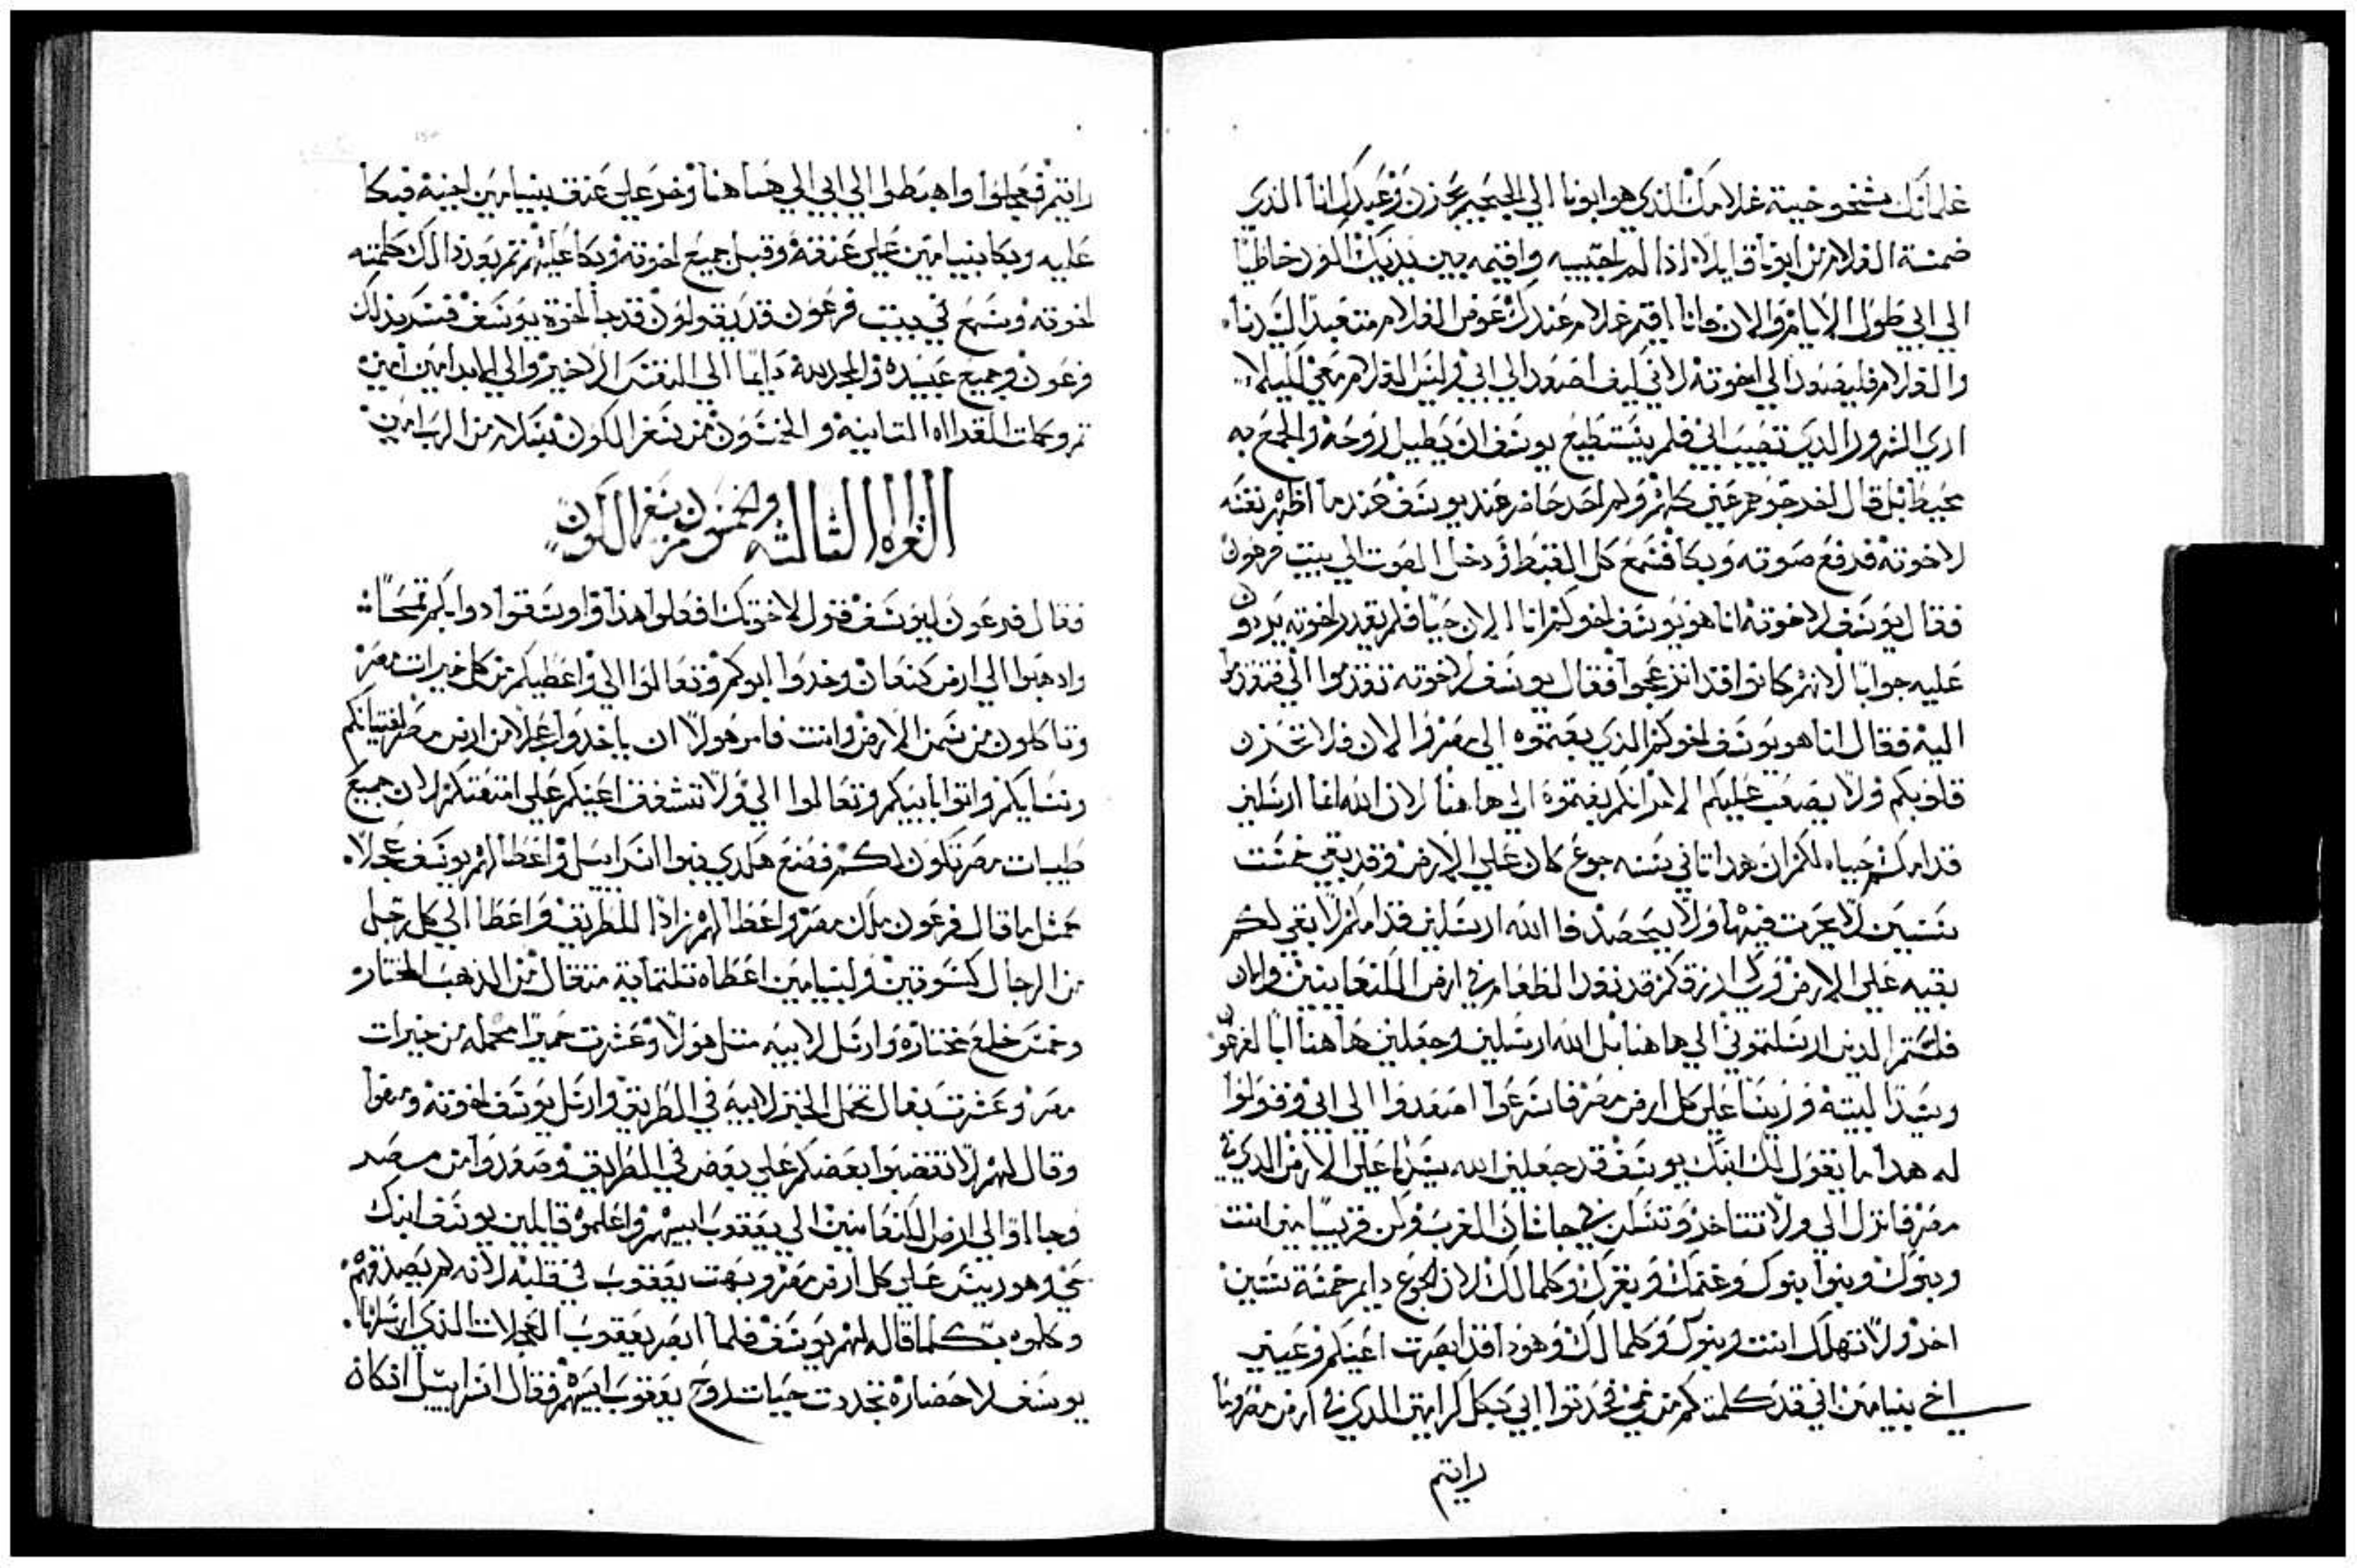 غلمانك شيخوخية غلامك الذي هو ابونا الي الجحيم بحزن وعبدك انا الذي
ضمنة الغلام من ابونا قايلا اذا لم اجيبه واقيمه بين يديك اكون خاطيا
الي ابي طول الايام والان فانا اقيم غلام عندك عوض الغلام متعبدا لسيدنا
والغلام فليصعد الي اخوته لاني كيف اصعد الي ابي وليس الغلام معي لكيلا
اري الشرور الدي تصيب ابي فلم يستطيع يوسف ان يطيل روحه والجمع به
محيط بل قال اخرجوهم عني كلهم ولم احد حاضر عند يوسف عندما اظهر نفسه
لاخوته فرفع صوته وبكا فسمع كل القبط ودخل الصوت الي بيت فرعون
فقال يوسف لاخوته انا هو يوسف اخوكم انا الان حيا فلم يقدر اخوته يردون
عليه جوابا لانهم كانوا قد انزعجوا فقال يوسف لاخوته تقدموا الي فتقدموا
اليه فقال انا هو يوسف اخوكم الدي بعتموه الي مصر والان فلا تحزن
قلوبكم ولا يصعب عليكم الامر انكم بعتموه الي هاهنا لان الله انما ارسلني
قدامكم حياه لكم ان هدا تاني سنه جوع كان علي الارض وقد بقي خمست
سنين لا يحرت فيها ولا يحصد فا الله ارسلني قدامكم لابقي لكم
بقيه علي الارض ورزقكم قد نفد الطعام في ارض الكنعانيين والان
فلستم الدين ارسلتموني الي هاهنا بل الله ارسلني وجعلني هاهنا ابا لفرعون
وسيدا لبيته وريسا علي كل ارض مصر فاسرعوا اصعدوا الي ابي وقولوا
له هدا ما يقول لك ابنك يوسف قد جعلني الله سيدا علي الارض الدي في
مصر فانزل الي ولا تتاخر وتسكن في جاشان الغرب وكن قريبا مني انت
وبنوك وبنوا بنوك وغنمك وبقرك وكلما لك لان الجوع دايم خمسة سنين
اخر ولا تهلك انت وبنوك وكلما لك وهودا قد ابصرت اعينكم وعينين
اخي بنيامين اني قد كلمتكم من فمي فخبروا ابي بكل كرامتي الدي في ارض مصر وما
رايتم
رايتم فعجلوا واهبطوا الي ابي الي هاهنا وخر علي عنق بنيامين اخيه فبكا
عليه وبكا بنيامين علي عنقه وقبل جميع اخوته وبكا عليهم تم بعد دالك كلمته
اخوته وسمع في بيت فرعون قد يقولون قد جا اخوة يوسف فسر بذلك
فرعون وجميع عبيده والمجد لله دايما الي النفس الاخير والي الابد امين امين
تم وكملت القراه التانيه والخمسون من سفر الكون بسلام من الرب امين
القراه الثالثه والخمسون من سفر الكون
فقال فرعون ليوسف قول لاخوتك افعلوا هذا واوسقوا دوابكم قمحا
وادهبوا الي ارض كنعان وخدوا ابوكم وتعالوا الي واعطيكم من كل خيرات مصر
وتاكلون من سمن الارض وانت فامر هولا ان ياخدوا عجلا من ارض مصر لفتيانكم
ونسايكم واتوا بابيكم وتعالوا الي ولا تشفق اعينكم علي امتعتكم لان جميع
طيبات مصر تكون لكم فصنع هكدي بنوا اسراييل واعطا لهم يوسف عجلا
كمثل ما قال فرعون ملك مصر واعطا لهم زادا للطريق واعطا الي كل رجل
من الرجال كسوتين ولبنيامين اعطاه تلتماية متقال من الذهب المختار
وخمس خلع مختاره وارسل لابيه متل هولا وعشرت حميرا محمله من خيرات
مصر وعشرت بغال تحمل الخبز لابيه في الطريق وارسل يوسف اخوته ومضوا
وقال لهم لا تغضبوا بعضكم علي بعض في الطريق وصعدوا من مصر
وجااوا الي ارض الكنعانيين الي يعقوب ابيهم واعلموه قايلين يوسف ابنك
حي وهو ريس علي كل ارض مصر وبهت يعقوب في قلبه لانه لم يصدقهم
وكلموه بكلما قاله لهم يوسف فلما ابصر يعقوب العجلات الذي ارسلها
يوسف لاحضاره تجددت حيات روح يعقوب ابيهم فقال اسراييل ان كان